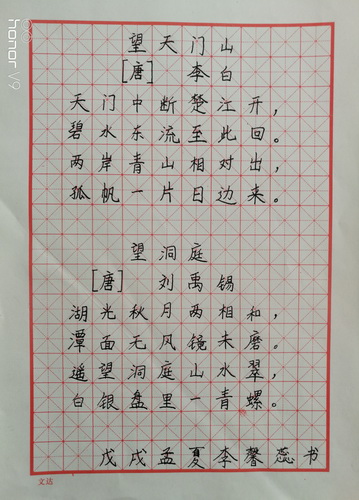 honor V9
望天门山
[唐] 李白
天门中断楚江开，
碧水东流至此回。
两岸青山相对出，
孤帆一片日边来。
望洞庭
[唐] 刘禹锡
湖光秋月两相和，
潭面无风镜未磨。
遥望洞庭山水翠，
白银盘里一青螺。
戊戌孟夏李馨蕊书
文达